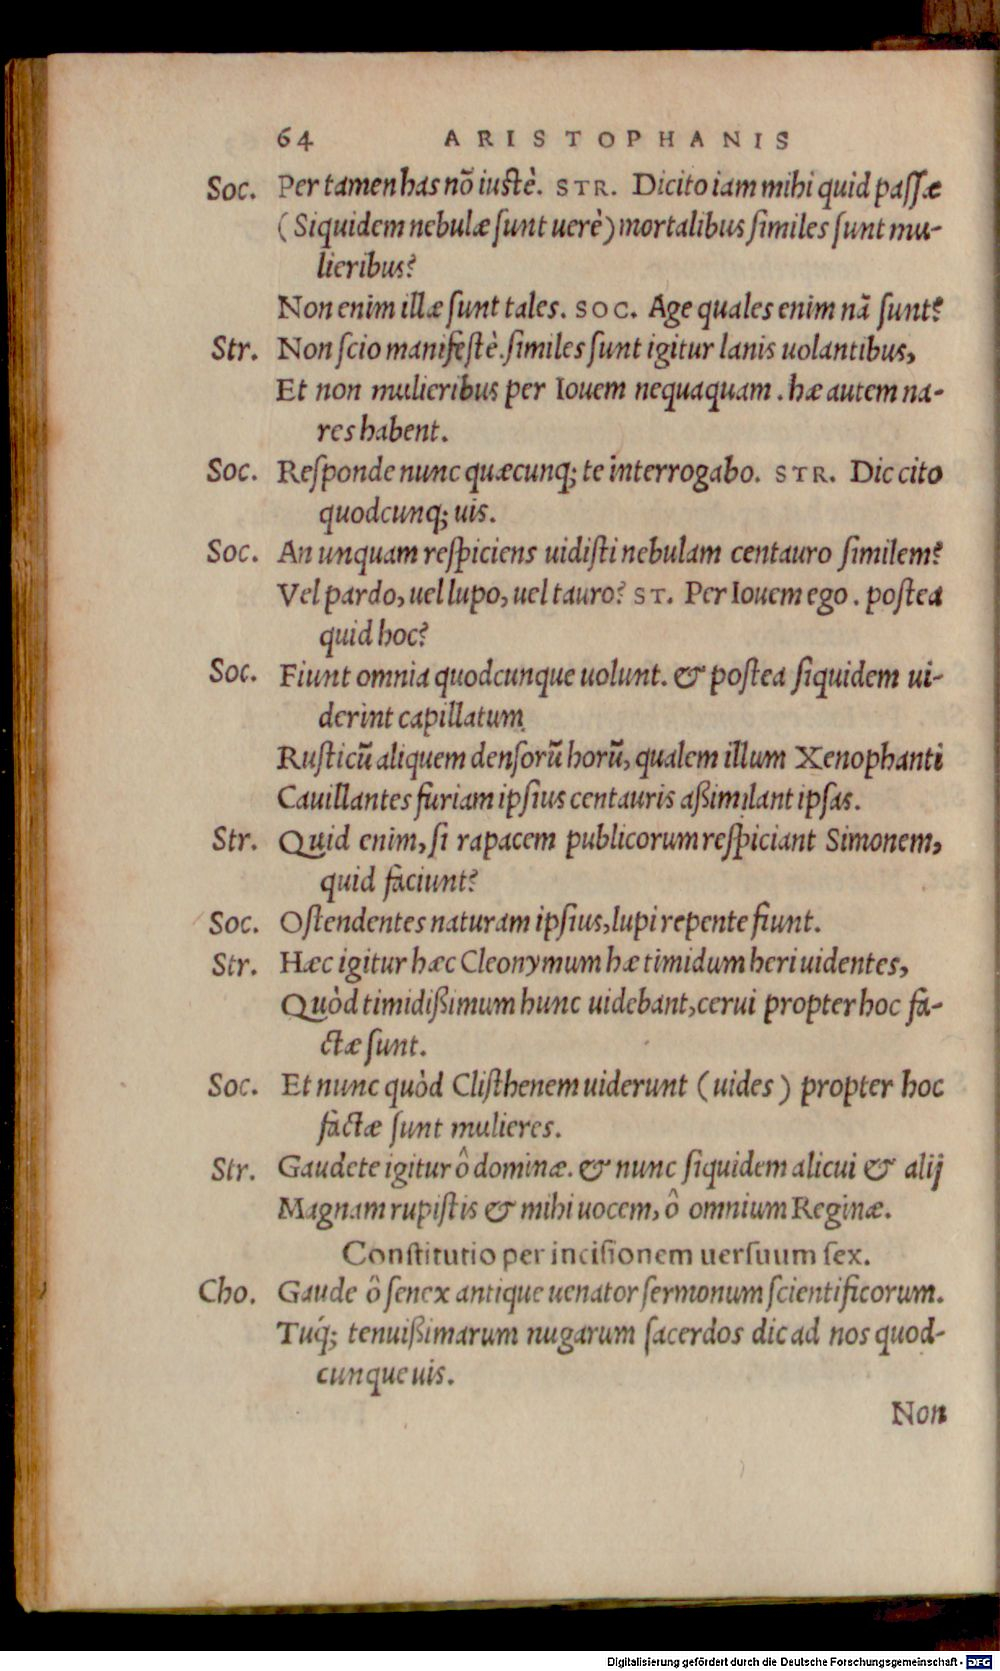 64 ARISTOPHANIS
Soc. Per tamen has nō iustè. STR. Dicito iam mihi quid passæ
(Siquidem nebulæ sunt uerè) mortalibus similes sunt mu-
lieribus?
Non enim illæ sunt tales. SOC. Age quales enim nā sunt?
Str. Non scio manifestè. similes sunt igitur lanis uolantibus,
Et non mulieribus per Iouem nequaquam. hæ autem na-
res habent.
Soc. Responde nunc quæcunq; te interrogabo. STR. Dic cito
quodcunq; uis.
Soc. An unquam respiciens uidisti nebulam centauro similem?
Vel pardo, uel lupo, uel tauro? ST. Per Iouem ego. postea
quid hoc?
Soc. Fiunt omnia quodcunque uolunt. & postea siquidem ui-
derint capillatum
Rusticū aliquem densorū horū, qualem illum Xenophanti
Cauillantes furiam ipsius centauris aßimilant ipsas.
Str. Quid enim, si rapacem publicorum respiciant Simonem,
quid faciunt?
Soc. Ostendentes naturam ipsius, lupi repente fiunt.
Str. Hæc igitur hæc Cleonymum hæ timidum heri uidentes,
Quòd timidißimum hunc uidebant, cerui propter hoc fa-
ctæ sunt.
Soc. Et nunc quòd Clisthenem uiderunt (uides) propter hoc
factæ sunt mulieres.
Str. Gaudete igitur ô dominæ. & nunc siquidem alicui & alij
Magnam rupistis & mihi uocem, ô omnium Reginæ.
Constitutio per incisionem uersuum sex.
Cho. Gaude ô senex antique uenator sermonum scientificorum.
Tuq́; tenuißimarum nugarum sacerdos dic ad nos quod-
cunque uis.
Non
Digitalisierung gefördert durch die Deutsche Forschungsgemeinschaft - DFG